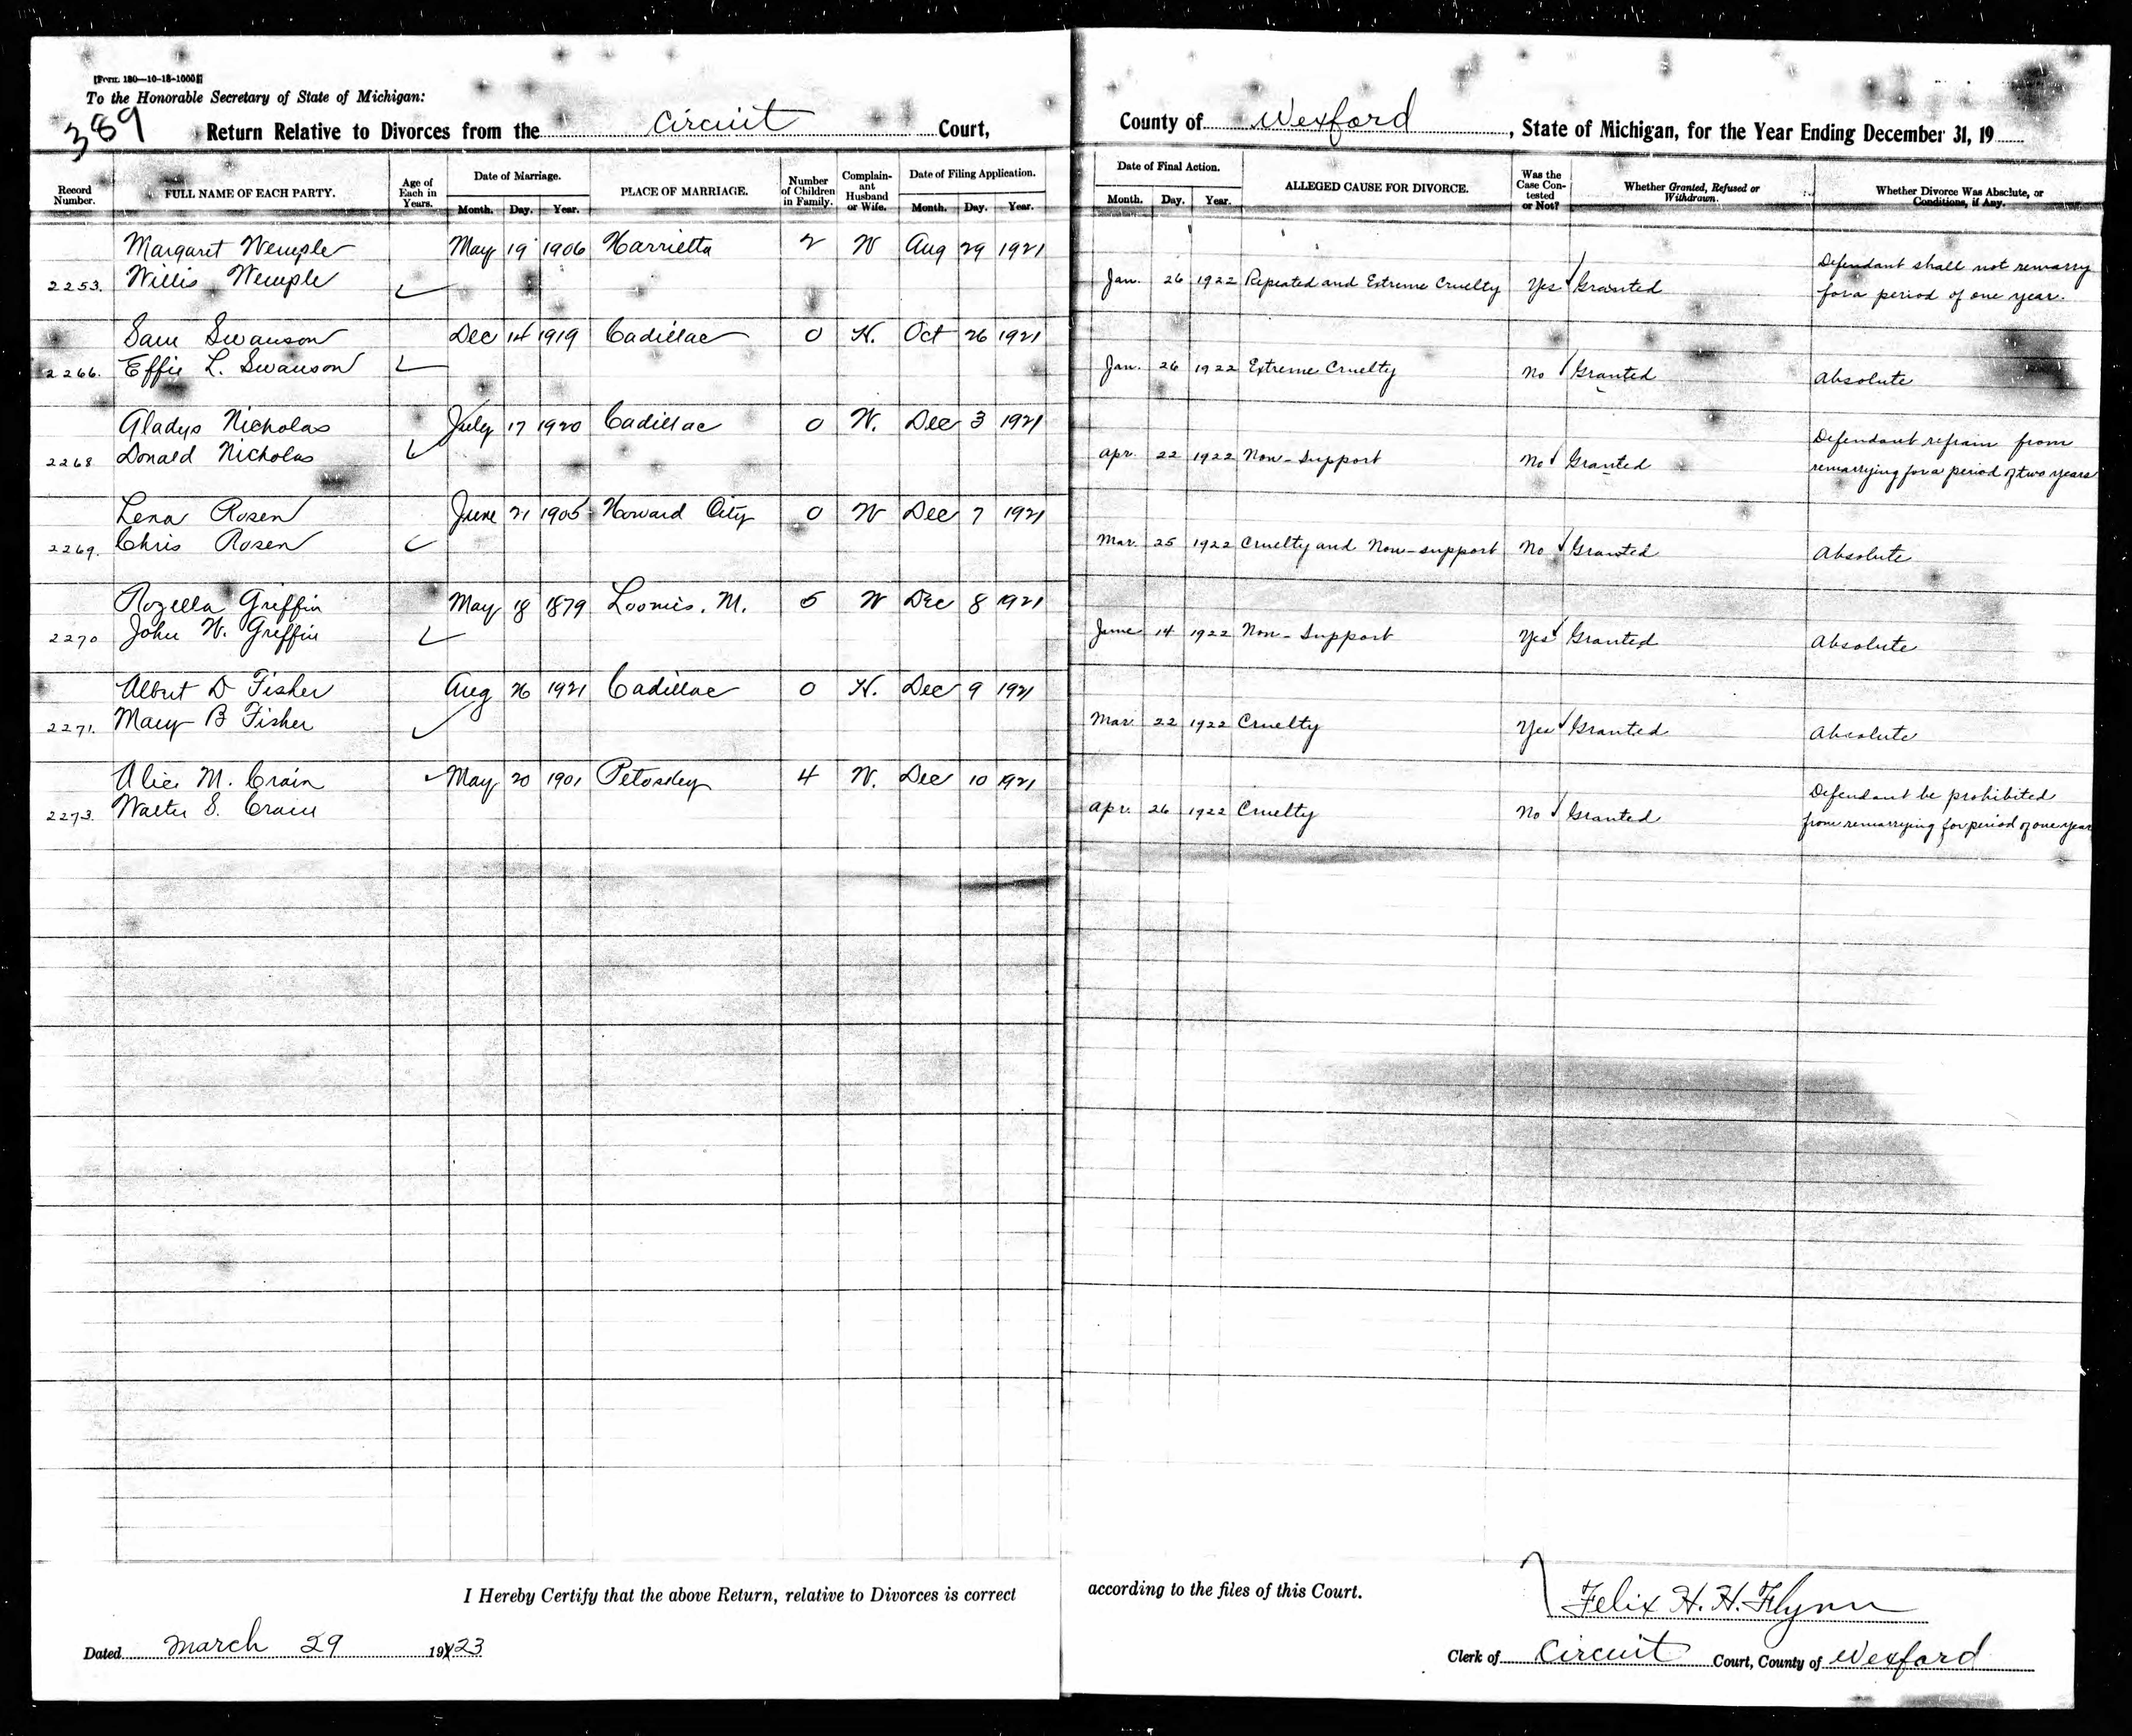 [Form 180—10-18-1000]
To the Honorable Secretary of State of Michigan:
389 Return Relative to Divorces from the Circuit Court, County of Wexford, State of Michigan, for the Year Ending December 31, 19
Record Number. FULL NAME OF EACH PARTY. Age of Each in Years. Date of Marriage. Month. Day. Year. PLACE OF MARRIAGE. Number of Children in Family. Complainant Husband or Wife. Date of Filing Application. Month. Day. Year. Date of Final Action. Month. Day. Year. ALLEGED CAUSE FOR DIVORCE. Was the Case Contested or Not? Whether Granted, Refused or Withdrawn. Whether Divorce Was Absolute, or Conditions, if Any.
Margaret Wemple May 19 1906 Harrietta 2 W Aug 29 1921 Defendant shall not remarry
2253. Willis Wemple Jan. 26 1922 Repeated and Extreme Cruelty Yes Granted for a period of one year.
Sam Swanson Dec 14 1919 Cadillac 0 H. Oct 26 1921
2266. Effie L. Swanson Jan. 26 1922 Extreme Cruelty No Granted Absolute
Gladys Nicholas July 17 1920 Cadillac 0 W. Dec 3 1921 Defendant refrain from
2268 Donald Nicholas Apr. 22 1922 Non-Support No Granted remarrying for a period of two years
Lena Rosen June 21 1905 Howard City 0 W Dec 7 1921
2269. Chris Rosen Mar. 25 1922 Cruelty and Non-support No Granted Absolute
Rozella Griffin May 18 1879 Loomis, M. 5 W Dec 8 1921
2270 John W. Griffin June 14 1922 Non-Support Yes Granted Absolute
Albert D Fisher Aug 26 1921 Cadillac 0 H. Dec 9 1921
2271. Mary B Fisher Mar. 22 1922 Cruelty Yes Granted Absolute
Alice M. Crain May 20 1901 Petoskey 4 W. Dec 10 1921 Defendant be prohibited
2273. Walter S. Crain Apr. 26 1922 Cruelty No Granted from remarrying for period of one year
I Hereby Certify that the above Return, relative to Divorces is correct according to the files of this Court.
Felix H. H. Flynn
Dated March 29 1923 Clerk of Circuit Court, County of Wexford